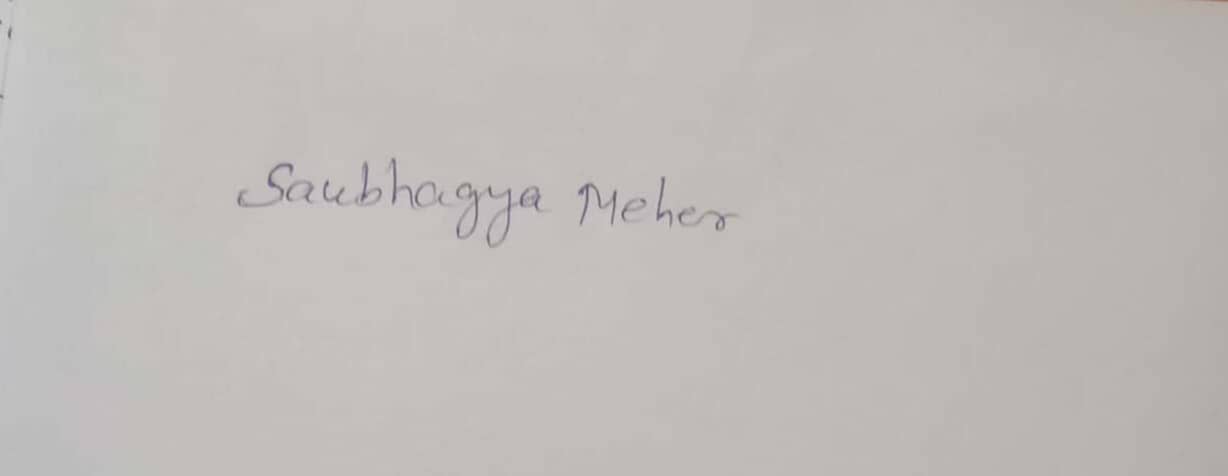 Saubhagya Meher